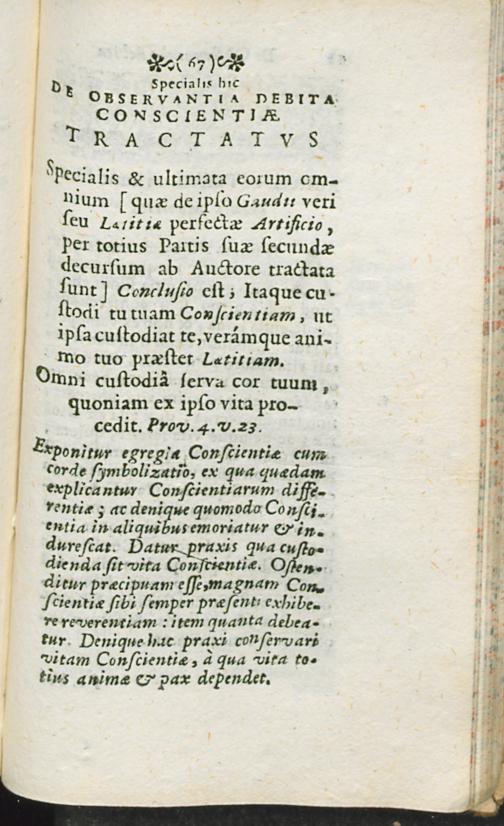 (67)
Specialis hic
DE OBSERVANTIA DEBITA
CONSCIENTIÆ
TRACTATVS
Specialis & ultimata eorum om-
nium [quæ de ipso Gaudii veri
seu Lætitiæ perfectæ Artificio,
per totius Partis suæ secundæ
decursum ab Auctore tractata
sunt] Conclusio est; Itaque cu-
stodi tu tuam Conscientiam, ut
ipsa custodiat te, verámque ani-
mo tuo præstet Lætitiam.
Omni custodiâ serva cor tuum,
quoniam ex ipso vita pro-
cedit. Prov. 4. v. 23.
Exponitur egregia Conscientiæ cum
corde symbolizatio, ex qua quædam
explicantur Conscientiarum diffe-
rentiæ; ac denique quomodo Consci-
entia in aliquibus emoriatur & in-
durescat. Datur praxis qua custo-
dienda sit vita Conscientiæ. Osten-
ditur præcipuam esse, magnam Con-
scientiæ sibi semper præsenti exhibe-
re reverentiam: item quanta debea-
tur. Denique hac praxi conservari
vitam Conscientiæ, à qua vita to-
tius animæ & pax dependet.